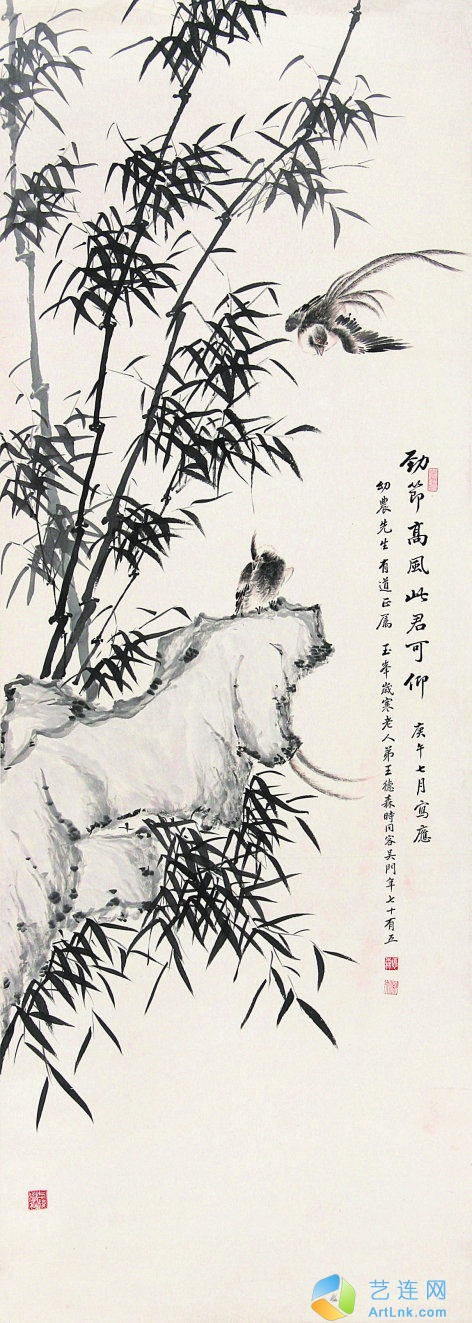 劲節高風此君可仰 庚午七月寫應
幼農先生有道正屬 玉峯歲寒老人弟王德森時同客吴門年七十有五
艺连网
ArtLnk.com